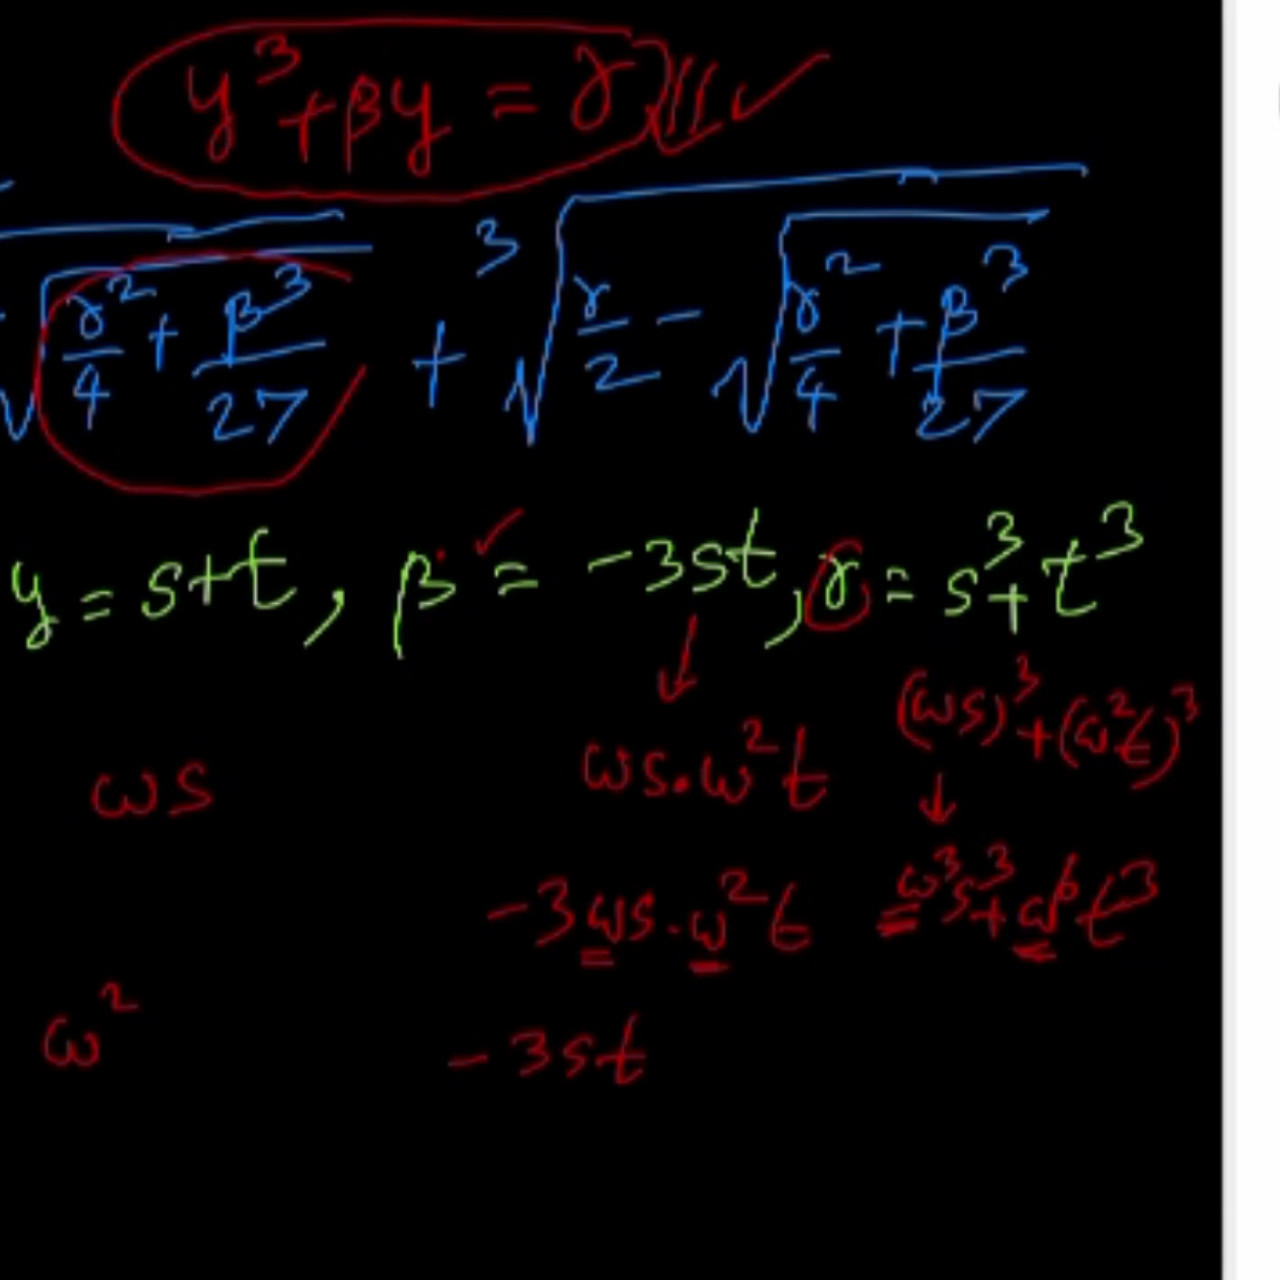 y³+βy = γ
√(γ²/4 + β³/27) + ³√(γ/2 - √(γ²/4 + β³/27))
y = s+t, β = -3st, γ = s³+t³
(ωs)³+(ω²t)³
ωs ωs.ω²t
-3ωs.ω²t ω³s³+ω⁶t³
ω² -3st